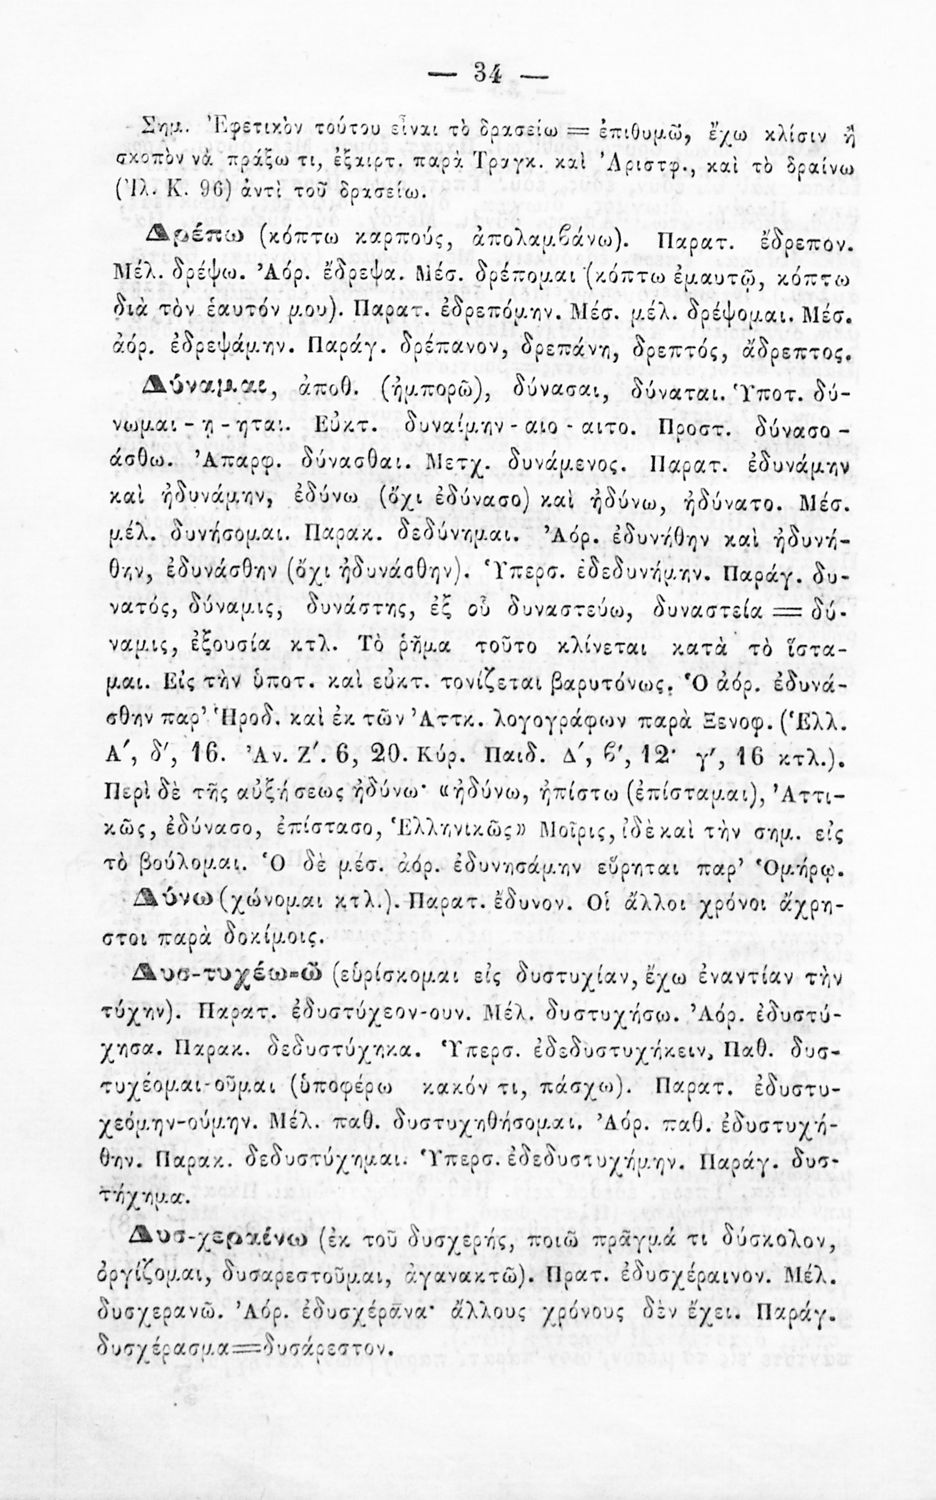 — 34 —
Σημ. Ἐφετικὸν τούτου εἶναι τὸ δρασείω = ἐπιθυμῶ, ἔχω κλίσιν ἢ
σκοπὸν νὰ πράξω τι, ἐξαιρτ. παρὰ Τραγκ. καὶ Ἀριστφ., καὶ τὸ δραίνω
(Ἰλ. Κ. 96) ἀντὶ τοῦ δρασείω.
Δρέπω (κόπτω καρπούς, ἀπολαμβάνω). Παρατ. ἔδρεπον.
Μέλ. δρέψω. Ἀόρ. ἔδρεψα. Μέσ. δρέπομαι (κόπτω ἐμαυτῷ, κόπτω
διὰ τὸν ἑαυτόν μου). Παρατ. ἐδρεπόμην. Μέσ. μέλ. δρέψομαι. Μέσ.
ἀόρ. ἐδρεψάμην. Παράγ. δρέπανον, δρεπάνη, δρεπτός, ἄδρεπτος.
Δύναμαι, ἀποθ. (ἠμπορῶ), δύνασαι, δύναται. Ὑποτ. δύ-
νωμαι - ῃ - ηται. Εὐκτ. δυναίμην - αιο - αιτο. Προστ. δύνασο -
άσθω. Ἀπαρφ. δύνασθαι. Μετχ. δυνάμενος. Παρατ. ἐδυνάμην
καὶ ἠδυνάμην, ἐδύνω (ὄχι ἐδύνασο) καὶ ἠδύνω, ἠδύνατο. Μέσ.
μέλ. δυνήσομαι. Παρακ. δεδύνημαι. Ἀόρ. ἐδυνήθην καὶ ἠδυνή-
θην, ἐδυνάσθην (ὄχι ἠδυνάσθην). Ὑπερσ. ἐδεδυνήμην. Παράγ. δυ-
νατός, δύναμις, δυνάστης, ἐξ οὗ δυναστεύω, δυναστεία = δύ-
ναμις, ἐξουσία κτλ. Τὸ ῥῆμα τοῦτο κλίνεται κατὰ τὸ ἵστα-
μαι. Εἰς τὴν ὑποτ. καὶ εὐκτ. τονίζεται βαρυτόνως. Ὁ ἀόρ. ἐδυνά-
σθην παρ' Ἡροδ. καὶ ἐκ τῶν Ἀττκ. λογογράφων παρὰ Ξενοφ. (Ἑλλ.
Α΄, δ΄, 16. Ἀν. Ζ΄. 6, 20. Κύρ. Παιδ. Δ΄, β΄, 12· γ΄, 16 κτλ.).
Περὶ δὲ τῆς αὐξήσεως ἠδύνω· «ἠδύνω, ἠπίστω (ἐπίσταμαι), Ἀττι-
κῶς, ἐδύνασο, ἐπίστασο, Ἑλληνικῶς» Μοῖρις, ἰδὲ καὶ τὴν σημ. εἰς
τὸ βούλομαι. Ὁ δὲ μέσ. ἀόρ. ἐδυνησάμην εὕρηται παρ' Ὁμήρῳ.
Δύνω (χώνομαι κτλ.). Παρατ. ἔδυνον. Οἱ ἄλλοι χρόνοι ἄχρη-
στοι παρὰ δοκίμοις.
Δυσ-τυχέω-ῶ (εὑρίσκομαι εἰς δυστυχίαν, ἔχω ἐναντίαν τὴν
τύχην). Παρατ. ἐδυστύχεον-ουν. Μέλ. δυστυχήσω. Ἀόρ. ἐδυστύ-
χησα. Παρακ. δεδυστύχηκα. Ὑπερσ. ἐδεδυστυχήκειν, Παθ. δυσ-
τυχέομαι-οῦμαι (ὑποφέρω κακόν τι, πάσχω). Παρατ. ἐδυστυ-
χεόμην-ούμην. Μέλ. παθ. δυστυχηθήσομαι. Ἀόρ. παθ. ἐδυστυχή-
θην. Παρακ. δεδυστύχημαι. Ὑπερσ. ἐδεδυστυχήμην. Παράγ. δυσ-
τύχημα.
Δυσ-χεραίνω (ἐκ τοῦ δυσχερής, ποιῶ πρᾶγμά τι δύσκολον,
ὀργίζομαι, δυσαρεστοῦμαι, ἀγανακτῶ). Πρατ. ἐδυσχέραινον. Μέλ.
δυσχερανῶ. Ἀόρ. ἐδυσχέρανα· ἄλλους χρόνους δὲν ἔχει. Παράγ.
δυσχέρασμα=δυσάρεστον.